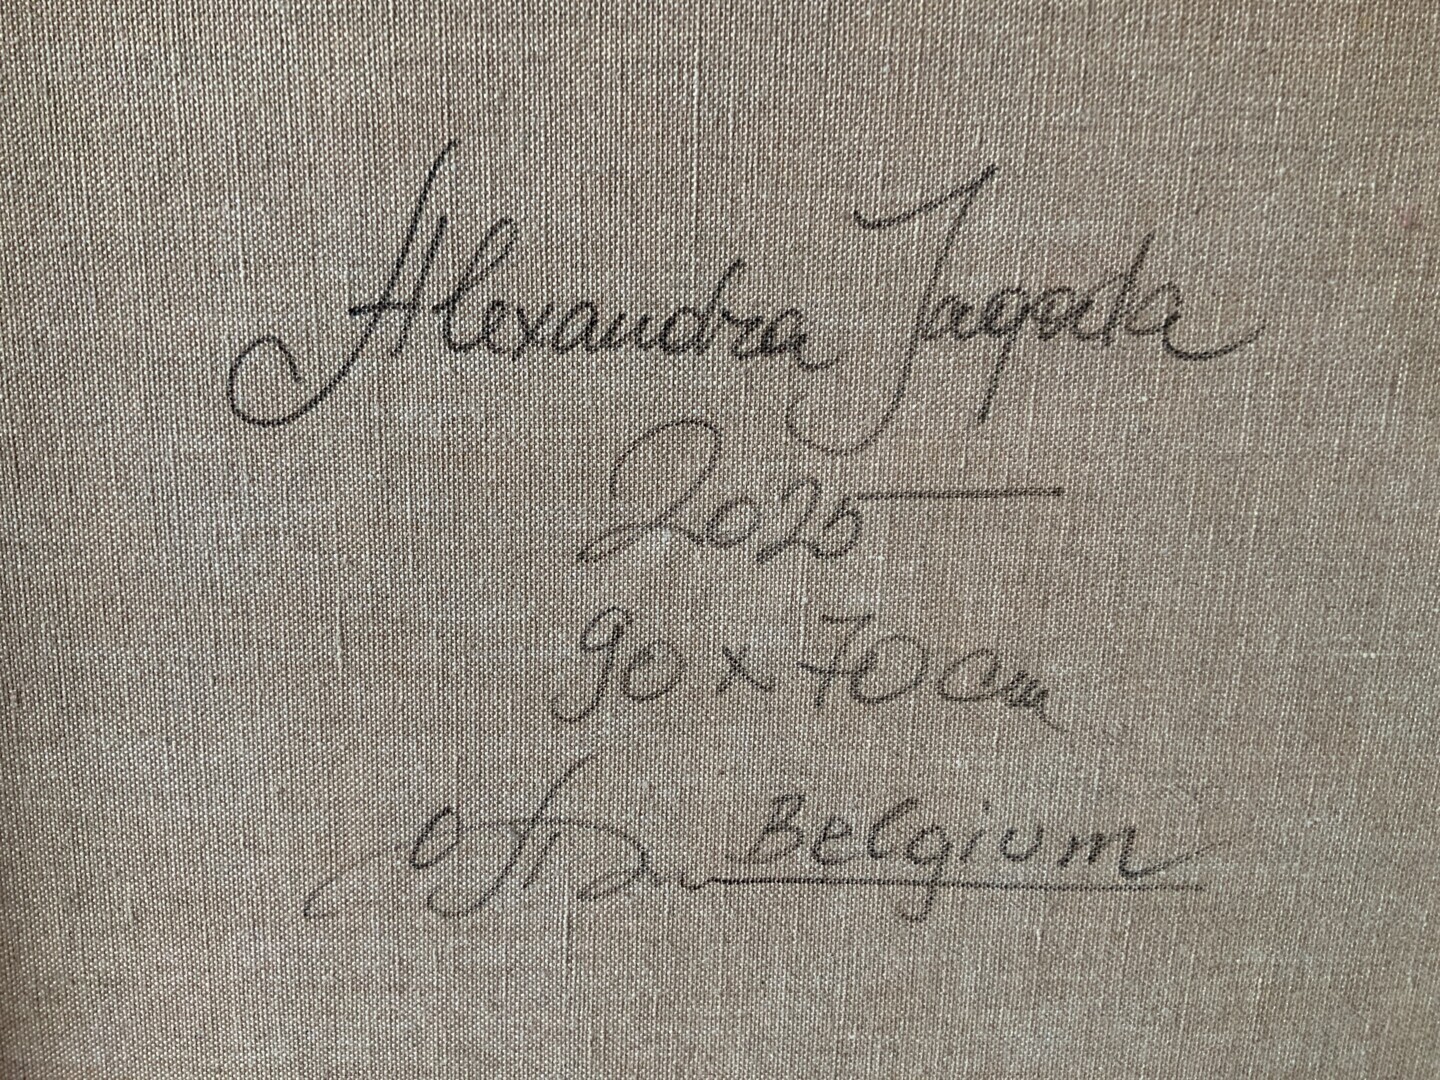 Alexandra Jagoda
2025
90 x 70 cm
Belgium